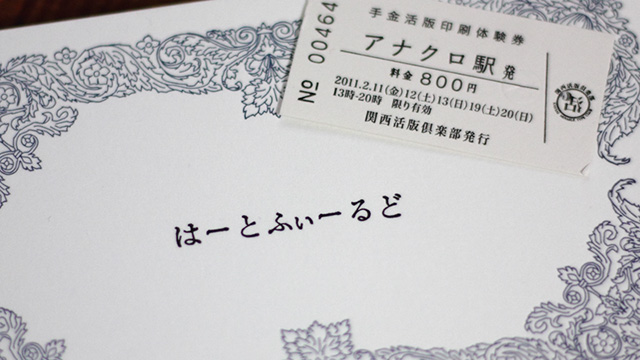 手金活版印刷体験券
アナクロ駅発
料金800円
2011.2.11(金)12(土)13(日)19(土)20(日)
13時-20時 限り有効
関西活版倶楽部発行
№ 00464
はーとふぃーるど